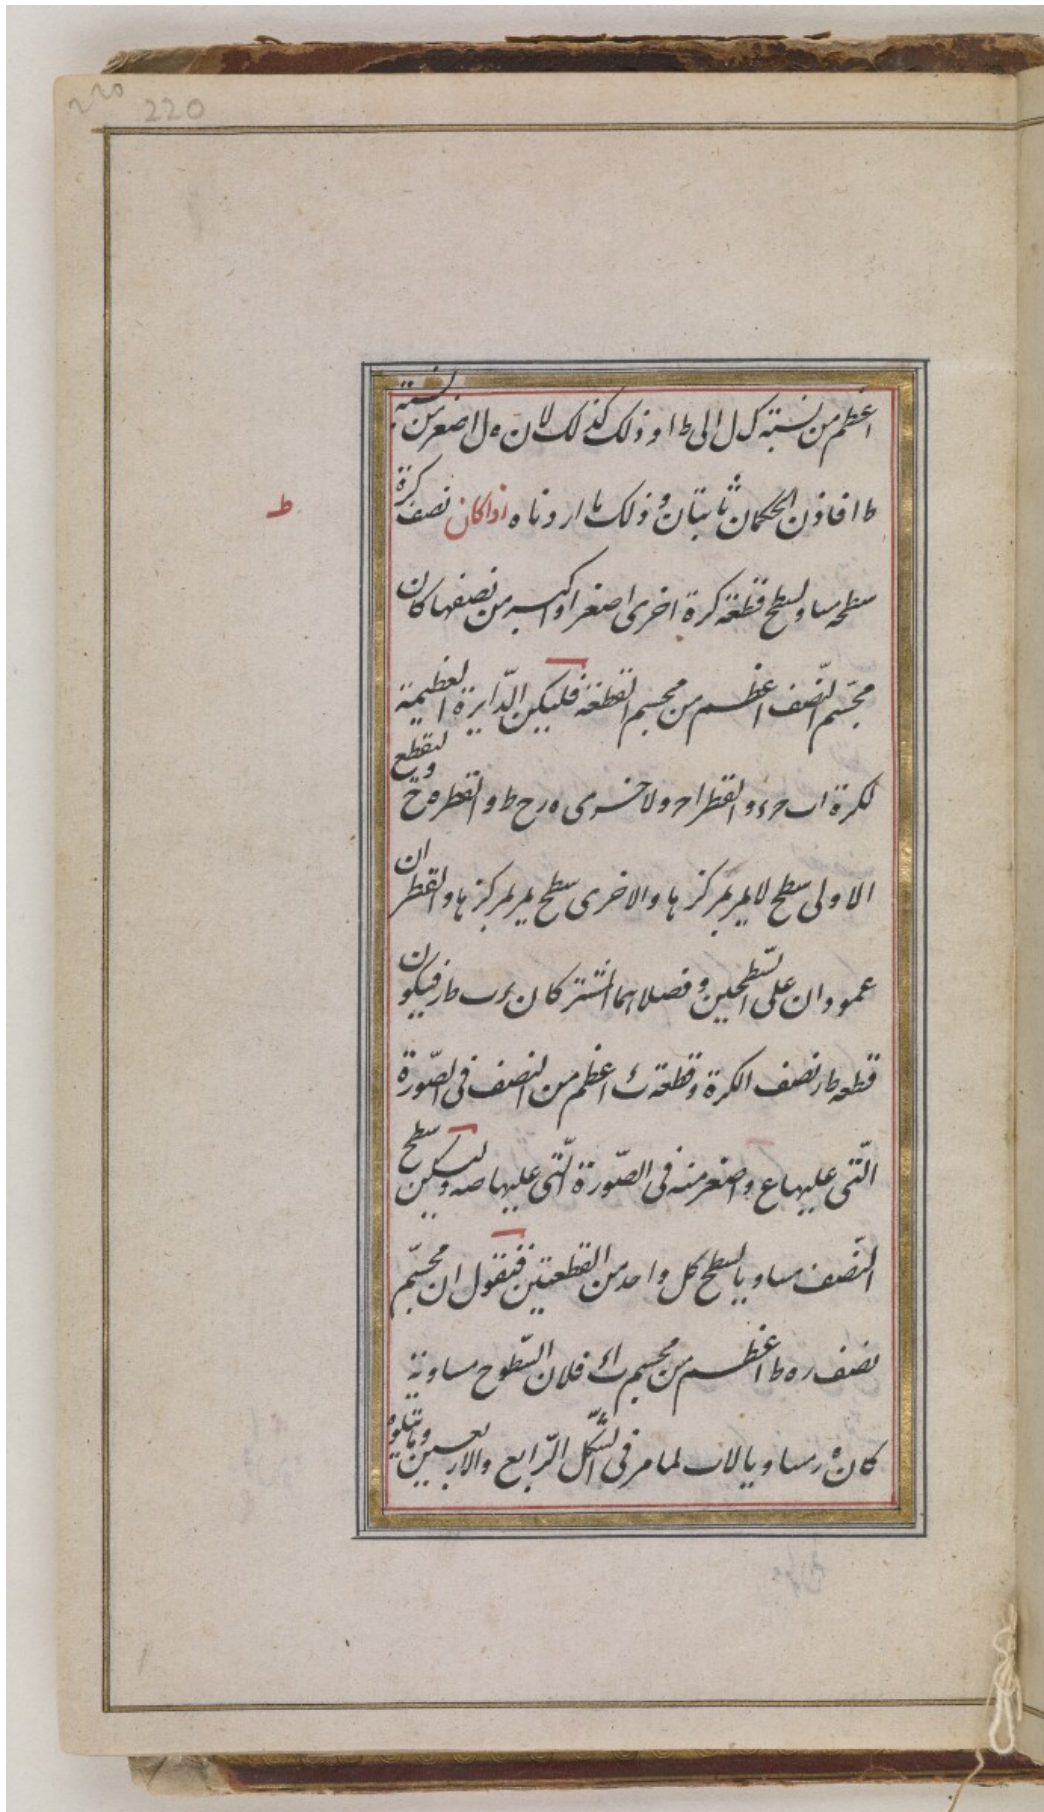 220 220
اعظم من نسبة ك ل الى ط ا و ذلك كذلك لان ه ل اصغر من نسبة
ط ا فاذن الحكمان ثابتان و ذلك ما اردناه اذا كان نصف كرة
ط
سطحه مساو لسطح قطعة كرة اخرى اصغر او اكبر من نصفها كان
مجسّم النّصف اعظم من مجسم القطعة فليكن الدّايرة العظيمة
لكرة ا ب ح ء و القطر ا ح و لاخرى ه ر ح ط و القطر ه ح وليقطع
الاولى سطح لا يمر بمركزها و الاخرى سطح يمر بمركزها و القطران
عمودان على السّطحين و فصلاهما المشتركان ء ب ط ر فيكون
قطعه ط ر نصف الكرة و قطعة اعظم من النصف فى الصّورة
الّتى عليها ع و اصغر منه فى الصّورة الّتى عليها صه وليكن سطح
النّصف مساويا لسطح كل واحد من القطعتين فنقول ان مجسّم
نصف ر ه ط اعظم من مجسم فلان السّطوح مساوية
كان ه ر مساويا لا ب لما مر فى الشّكل الرّابع و الاربعين و ما يتلوه